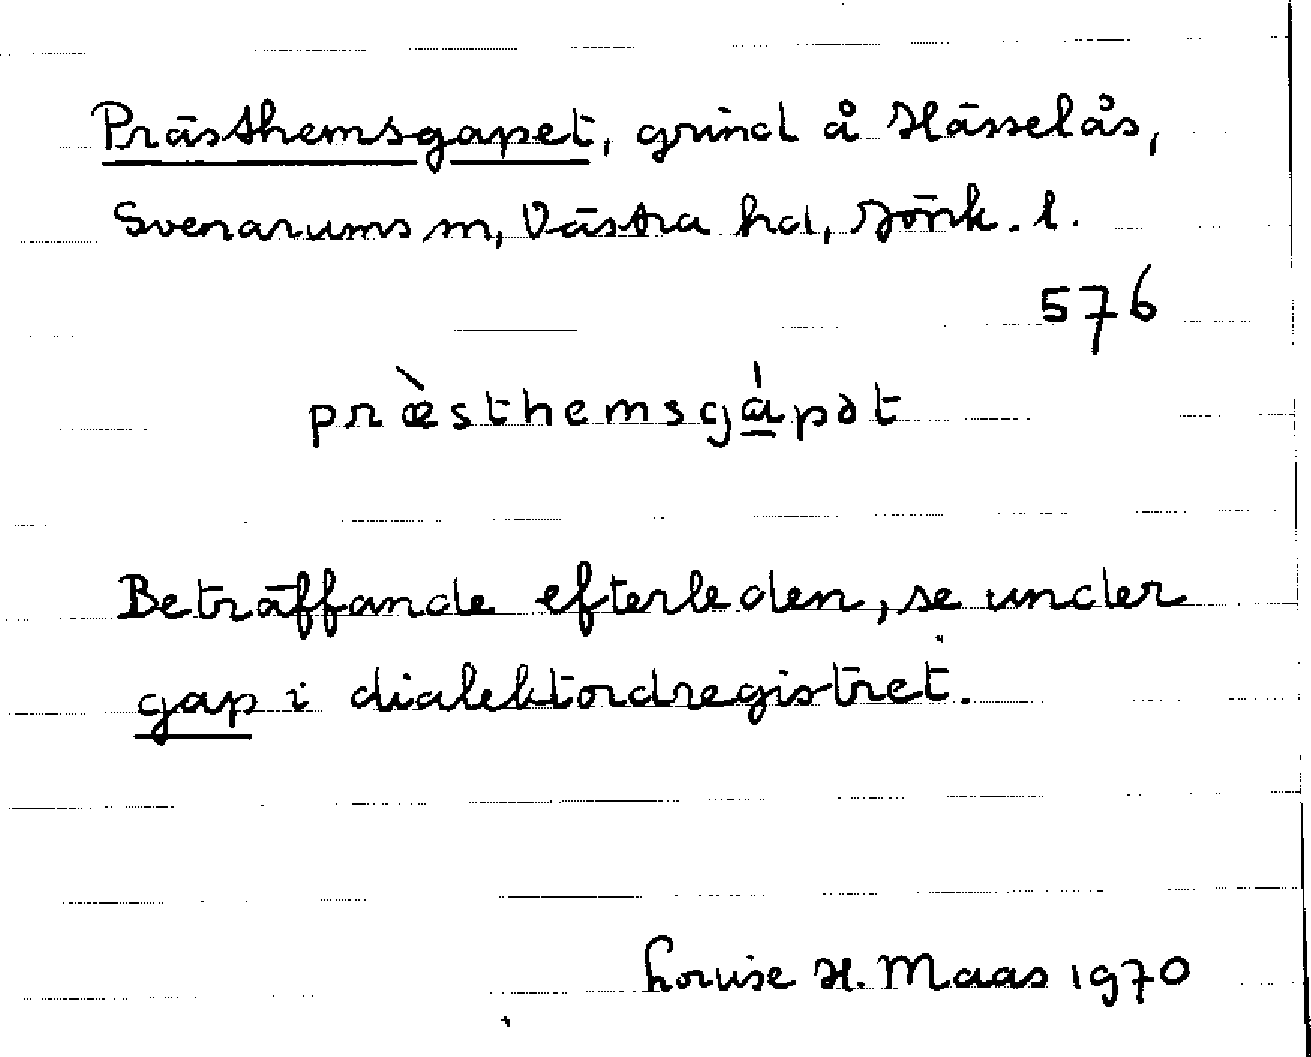 Prästhemsgapet, grind å Hässelås,
Svenarums sn, Västra hd, Jönk. l.
576
præ̀sthemsgápət
Beträffande efterleden, se under
gap i dialektordregistret.
Louise H. Maas 1970